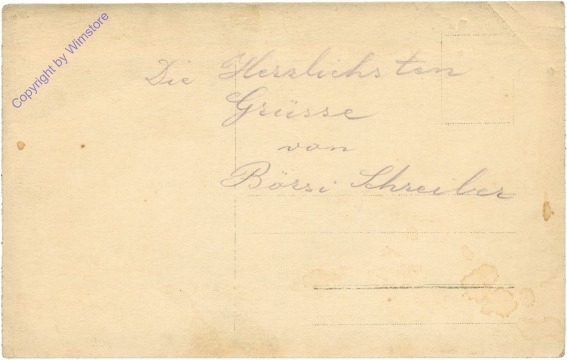 Copyright by Wimstore
Die Herzlichsten
Grüsse
von
Börsi Schreiber